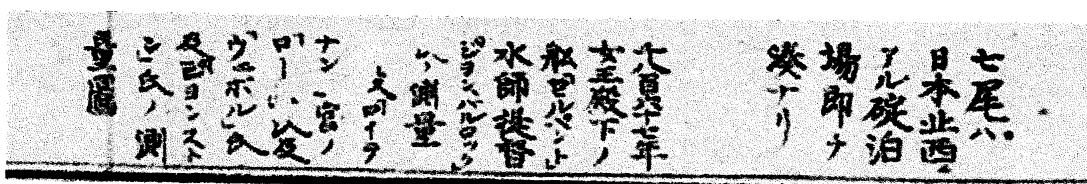 七尾ハ
日本北西ニ
アル碇泊
場即チ
湊ナリ
千八百六十七年
女王殿下ノ
舩「セルペント」
水師提督
「ジヨン、バルロック」
ノ測量
ナン一官ノ
「ロー」以及
「ウエボル」氏
及「ヨンスト
ン」氏ノ測
量圖